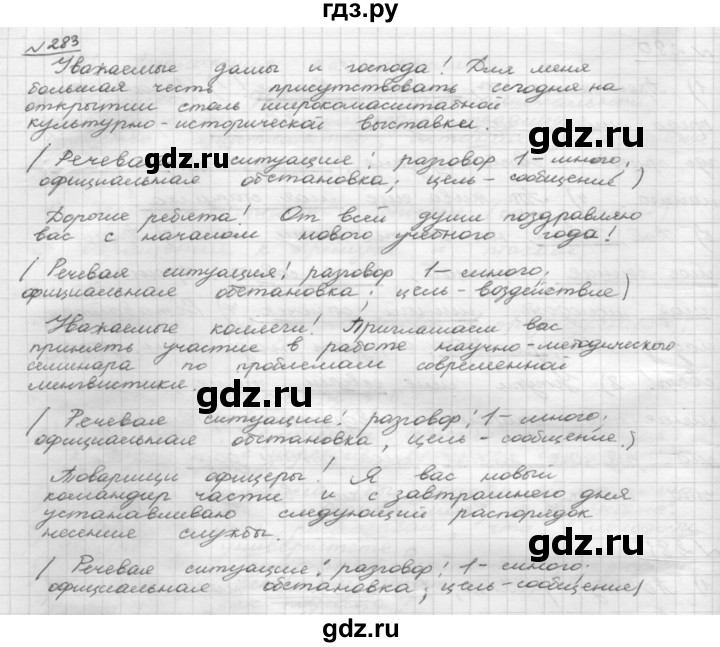 гдз.ру
№283
Уважаемые дамы и господа! Для меня
большая честь присутствовать сегодня на
открытии столь широкомасштабной
культурно-исторической выставки.
gdz.ru
gdz.ru
(Речевая ситуация: разговор 1-много;
официальная обстановка; цель - сообщение)
Дорогие ребята! От всей души поздравляю
вас с началом нового учебного года!
gdz.ru
(Речевая ситуация: разговор 1-много;
официальная обстановка; цель - воздействие)
gdz.ru
Уважаемые коллеги! Приглашаем вас
принять участие в работе научно-методического
семинара по проблемам современной
лингвистики.
gdz.ru
(Речевая ситуация: разговор: 1-много;
официальная обстановка, цель - сообщение.)
gdz.ru
Товарищи офицеры! Я ваш новый
командир части и с завтрашнего дня
устанавливаю следующий распорядок
несения службы.
gdz.ru
(Речевая ситуация: разговор: 1-много;
официальная обстановка; цель-сообщение)
gdz.ru
gdz.ru